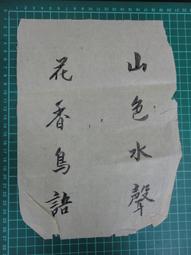 山色水聲
花香鳥語